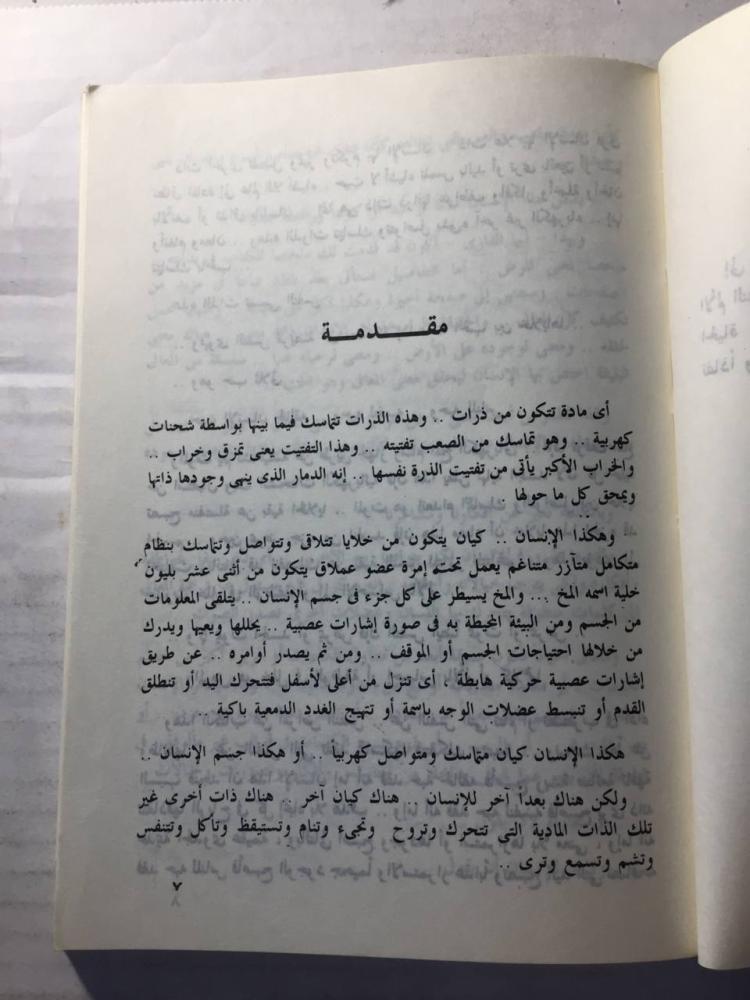 مقدمة
أى مادة تتكون من ذرات .. وهذه الذرات تتماسك فيما بينها بواسطة شحنات
كهربية .. وهو تماسك من الصعب تفتيته .. وهذا التفتيت يعنى تمزق وخراب ..
والخراب الأكبر يأتى من تفتيت الذرة نفسها .. إنه الدمار الذى ينهى وجودها ذاتها
ويمحق كل ما حولها .
وهكذا الإنسان .. كيان يتكون من خلايا تتلاقى وتتواصل وتتماسك بنظام
متكامل متآزر متناغم يعمل تحت إمرة عضو عملاق يتكون من أثنى عشر بليون
خلية اسمه المخ ... والمخ يسيطر على كل جزء فى جسم الإنسان .. يتلقى المعلومات
من الجسم ومن البيئة المحيطة به فى صورة إشارات عصبية .. يحللها ويعيها ويدرك
من خلالها احتياجات الجسم أو الموقف .. ومن ثم يصدر أوامره .. عن طريق
إشارات عصبية حركية هابطة ، أى تتنزل من أعلى لأسفل فتتحرك اليد أو تنطلق
القدم أو تنبسط عضلات الوجه باسمة أو تتهيج الغدد الدمعية باكية ..
هكذا الإنسان كيان متماسك ومتواصل كهربياً .. أو هكذا جسم الإنسان ..
ولكن هناك بعداً آخر للإنسان .. هناك كيان آخر .. هناك ذات أخرى غير
تلك الذات المادية التى تتحرك وتروح وتجىء وتنام وتستيقظ وتأكل وتتنفس
وتشم وتسمع وترى ..
٧